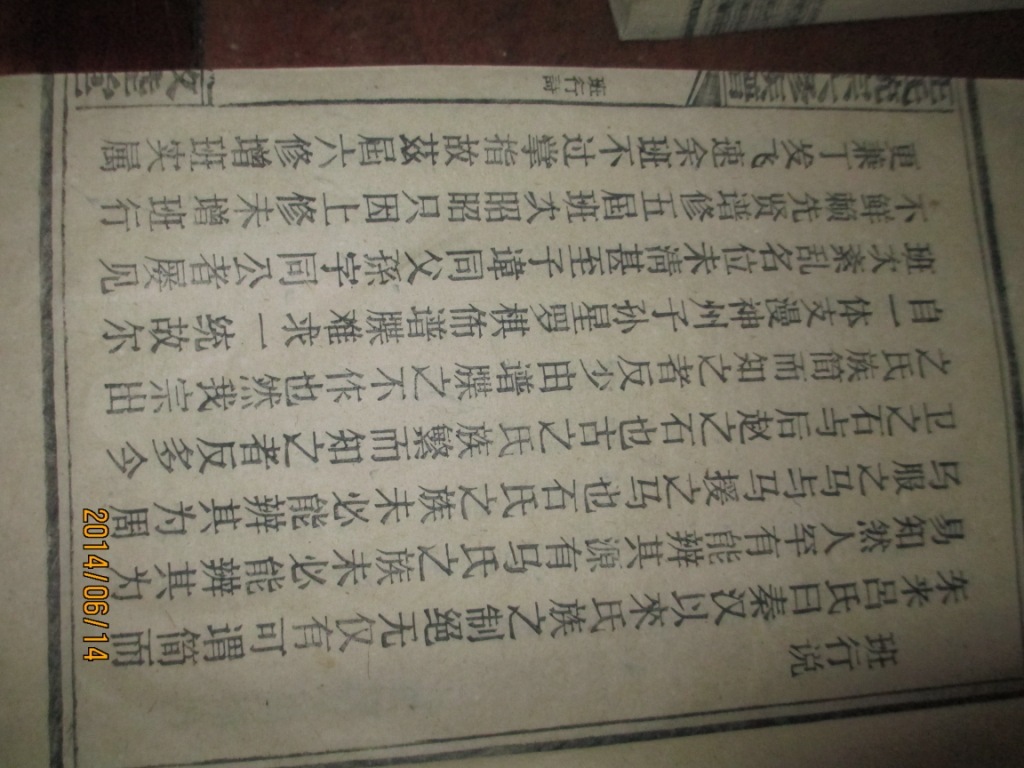 班行说
东来吕氏曰秦汉以来氏族之制绝无仅有可谓简而
易知然人罕有能辨其源有马氏之族未必能辨其为
马服之马与马援之马也石氏之族未必能辨其为周
卫之石与后赵之石也古之氏族繁而知之者反多今
之氏族简而知之者反少由谱牒之不作也然我宗出
自一体支漫神州子孙星罗棋佈谱牒难求一统故尔
班次紊乱名位未清甚至子諱同父孫字同公者屡见
不鲜赖先贤谱修五届班次昭昭只因上修未增班行
更兼丁发飞速余班不过掌指故兹届六修增班实属
班行詩
2014/06/14